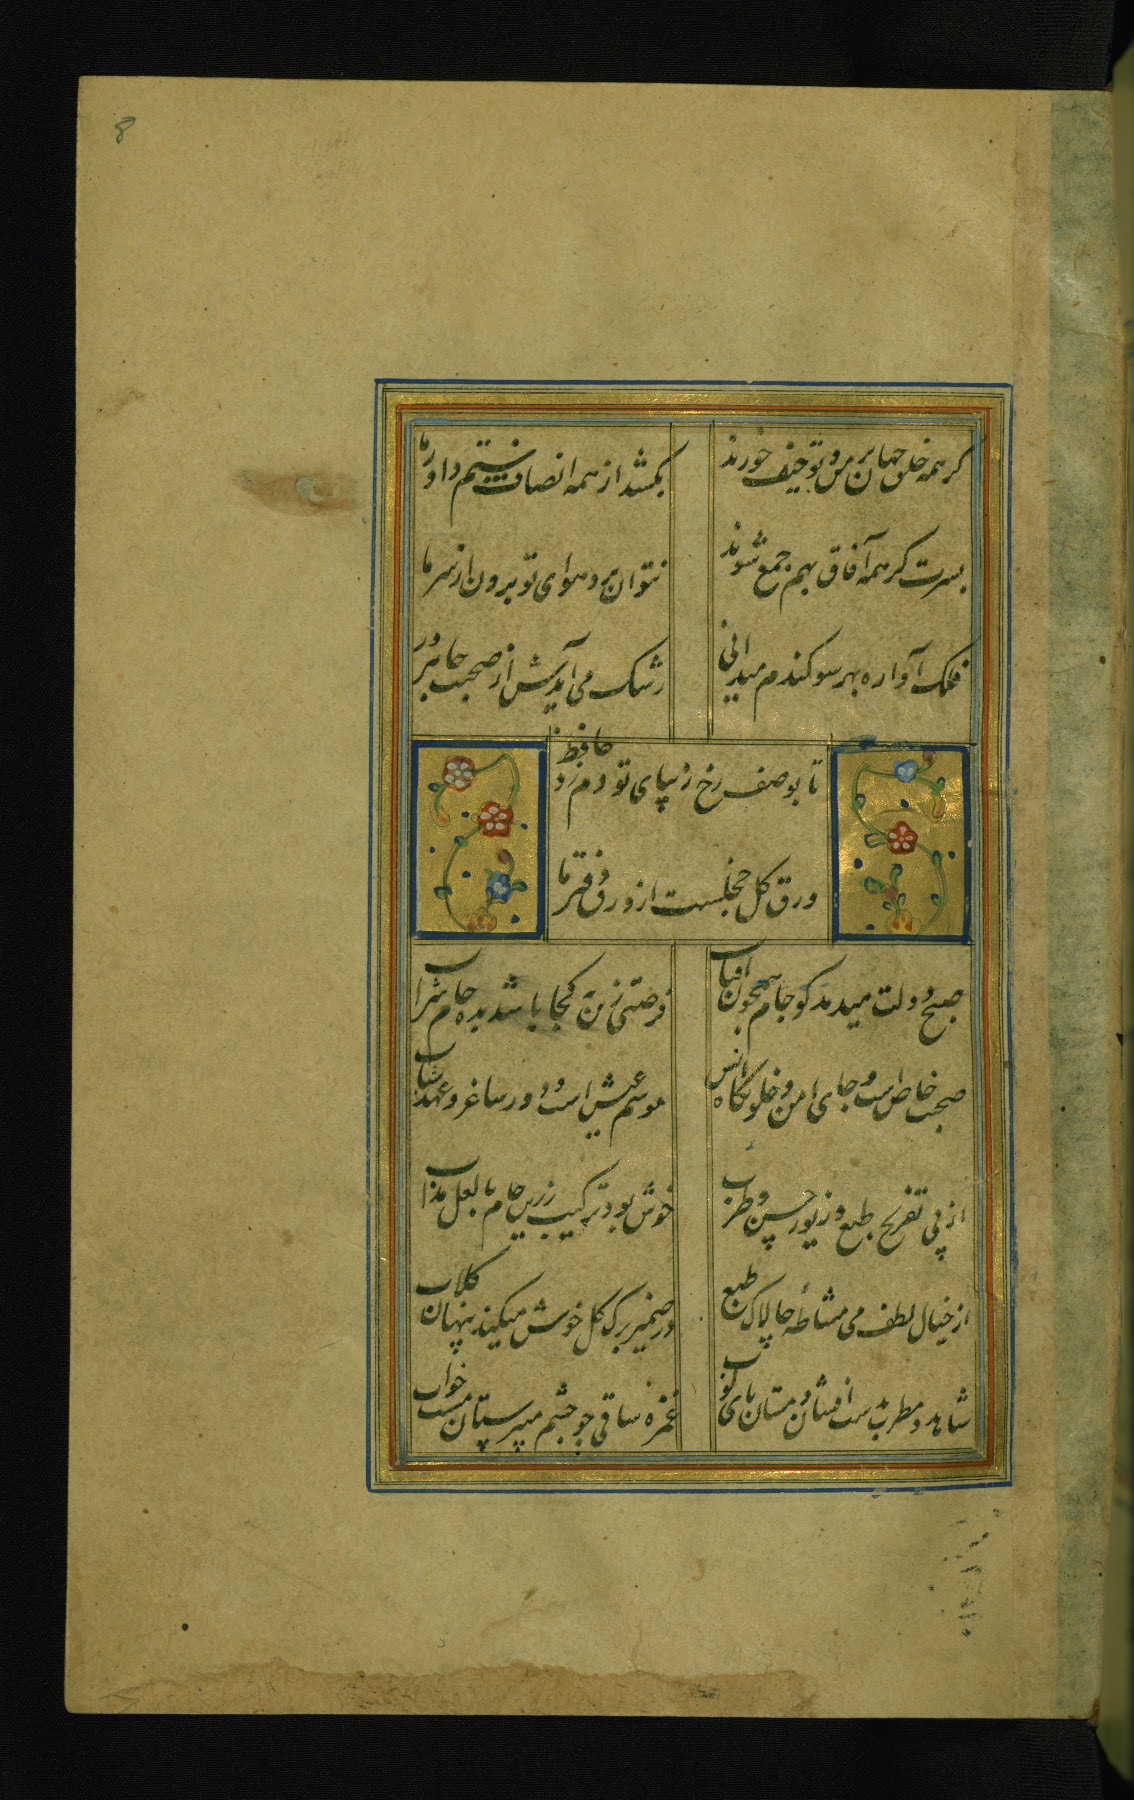 8
کر همه خلق جهان بر من و تو حیف خورند
بکشد از همه انصاف ستم داور ما
بسرت کر همه آفاق بهم جمع شوند
نتوان برد هوای تو برون از سر ما
فلک آواره بهر سو کندم میدانی
رشک می آیدش از صحبت جان پرور ما
تا بوصف رخ زیبای تو دم زد حافظ
ورق کل خجلست از ورق دفتر ما
صبح دولت میدمد کو جام همچون آفتاب
فرصتی زین به کجا باشد بده جام شراب
صحبت خاص است و جای امن و خلوتکاه انس
موسم عیش است و دور ساغر و عهد شباب
از پی تفریح طبع و زیور حسن و طرب
خوش بود ترکیب زرین جام با لعل مذاب
از خیال لطف می مشاطه چالاک طبع
در ضمیر برک کل خوش میکند پنهان کلاب
شاهد و مطرب بدست افشان و مستان پای کوب
غمزه ساقی چو چشم می پرستان مست خواب